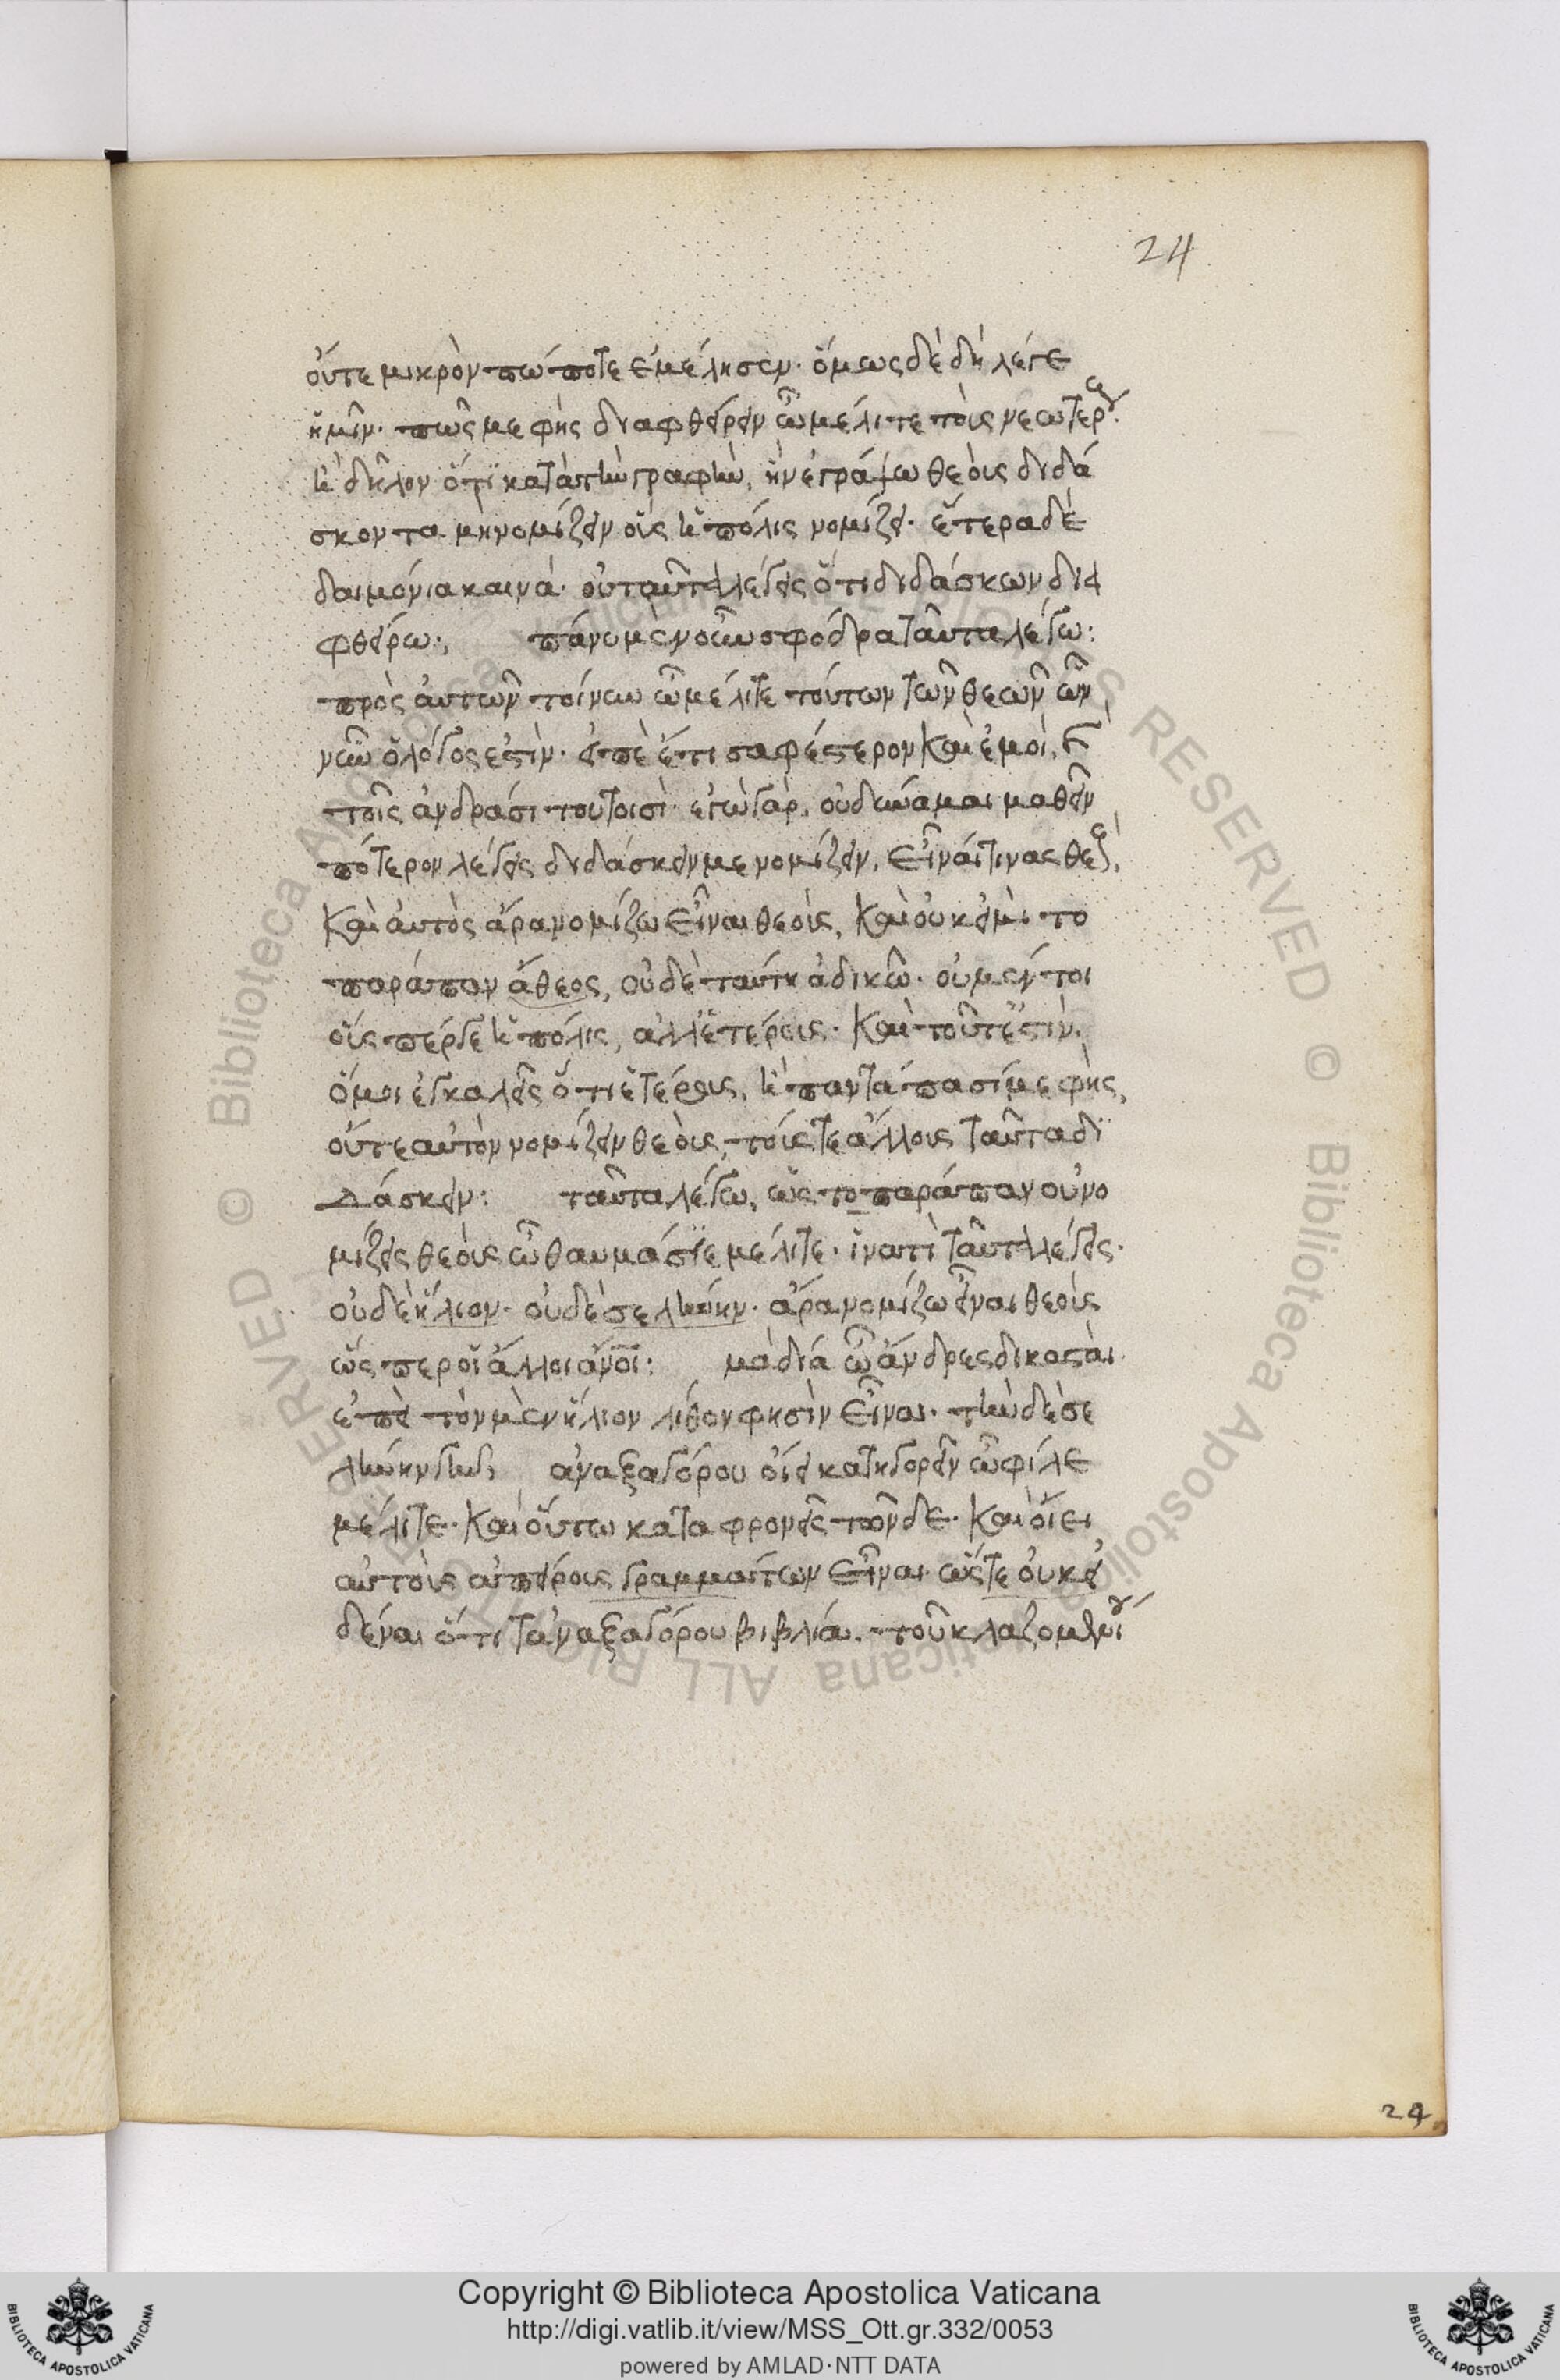 24
οὔτε μικρὸν πώποτε ἐμέλησεν· ὅμως δὲ δὴ λέγε
ἡμῖν· πῶς με φὴς διαφθείρειν ὦ μέλιτε τοὺς νεωτέρους·
ἢ δῆλον ὅτι κατὰ τὴν γραφὴν, ἣν ἐγράψω θεοὺς διδά
σκοντα μὴ νομίζειν οὓς ἡ πόλις νομίζει· ἕτερα δὲ
δαιμόνια καινά· οὐ ταῦτα λέγεις ὅτι διδάσκων δια
φθείρω:, πάνυ μὲν οὖν σφόδρα ταῦτα λέγω:
πρὸς αὐτῶν τοίνυν ὦ μέλιτε τούτων τῶν θεῶν ὧν
νῦν ὁ λόγος ἐστὶν· εἰπὲ ἔτι σαφέστερον καὶ ἐμοὶ, καὶ
τοῖς ἀνδράσι τουτοισὶ· ἐγὼ γὰρ, οὐ δύναμαι μαθεῖν
πότερον λέγεις διδάσκειν με νομίζειν, εἶναί τινας θεούς,
καὶ αὐτὸς ἄρα νομίζω εἶναι θεοὺς, καὶ οὐκ εἰμὶ το
παράπαν ἄθεος, οὐδὲ ταύτη ἀδικῶ· οὐ μέντοι
οὕς περ γε ἡ πόλις, ἀλλ' ἑτέρους· καὶ τοῦτ' ἔστιν,
ὅ μοι ἐγκαλεῖς ὅτι ἑτέρους, ἢ πανταπασί με φὴς,
οὔτε αὐτὸν νομίζειν θεοὺς, τούς τε ἄλλους ταῦτα δι
δάσκειν: ταῦτα λέγω, ὡς το παράπαν οὐ νο
μίζεις θεοὺς ὦ θαυμάσιε μέλιτε· ἱνατί ταῦτα λέγεις·
οὐδὲ ἥλιον· οὐδὲ σελήνην· ἄρα νομίζω εἶναι θεοὺς
ὥς περ οἱ ἄλλοι ἄνοι: μὰ δία ὦ ἄνδρες δικασταὶ
ἐπεὶ τὸν μὲν ἥλιον λίθον φησὶν εἶναι· τὴν δὲ σε
λήνην γῆν: ἀναξαγόρου οἴει κατηγορεῖν ὦ φίλε
μέλιτε· καὶ οὕτω καταφρονεῖς τῶνδε· καὶ οἴει
αὐτοὺς ἀπείρους γραμμάτων εἶναι· ὥστε οὐκ εἰ
δέναι ὅτι τἀναξαγόρου βιβλία, τοῦ κλαζομενίου
24
Copyright © Biblioteca Apostolica Vaticana
http://digi.vatlib.it/view/MSS_Ott.gr.332/0053
powered by AMLAD·NTT DATA